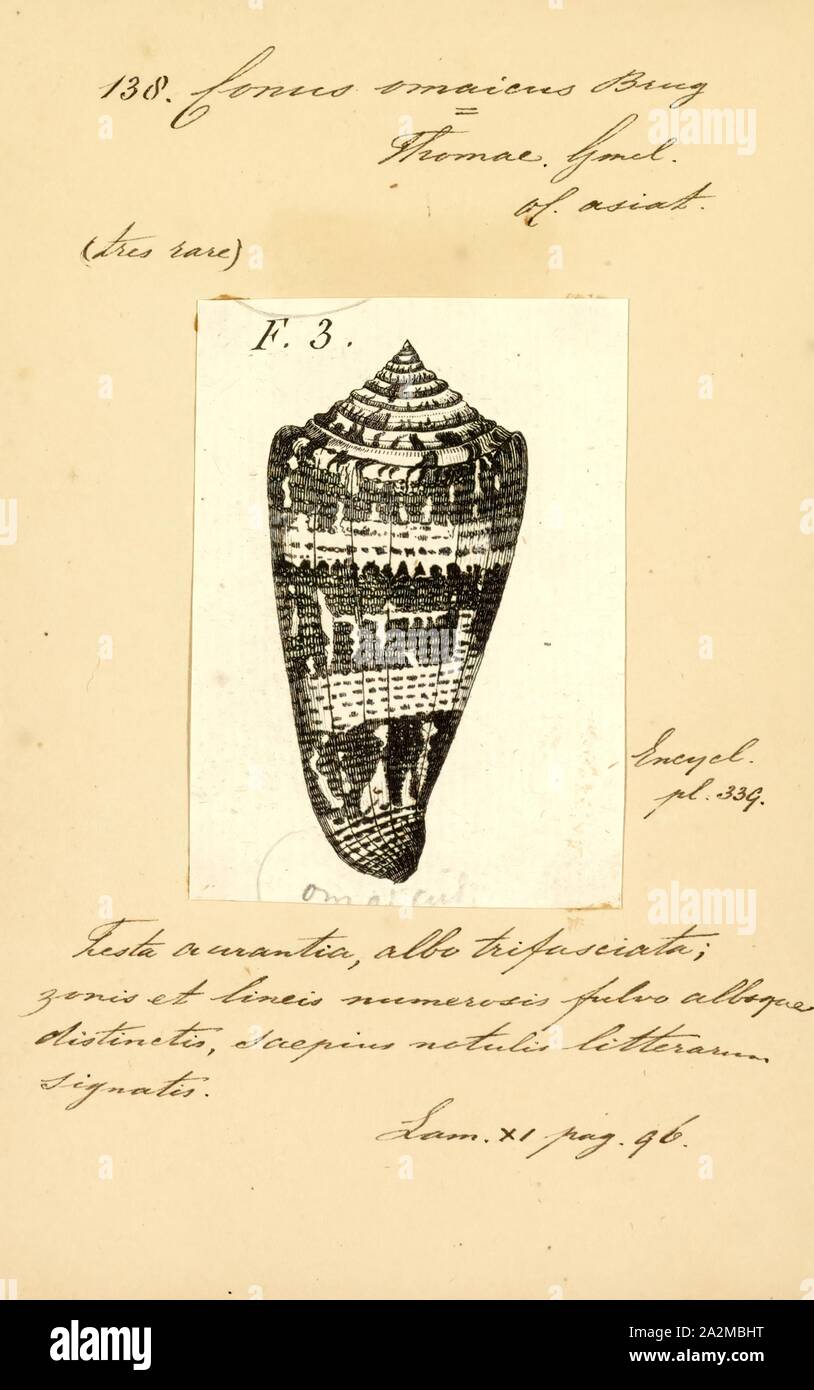 138. Conus omaicus Brug
Thomae. Gmel.
of. asiat.
(tres rare)
F. 3.
Encycl.
pl. 339.
Testa aurantia, albo trifasciata;
zonis et lineis numerosis fulvo alboque
distinctis, saepius notulis litterarum
signatis.
Lam. XI pag. 96.
alamy
Image ID: 2A2MBHT
www.alamy.com